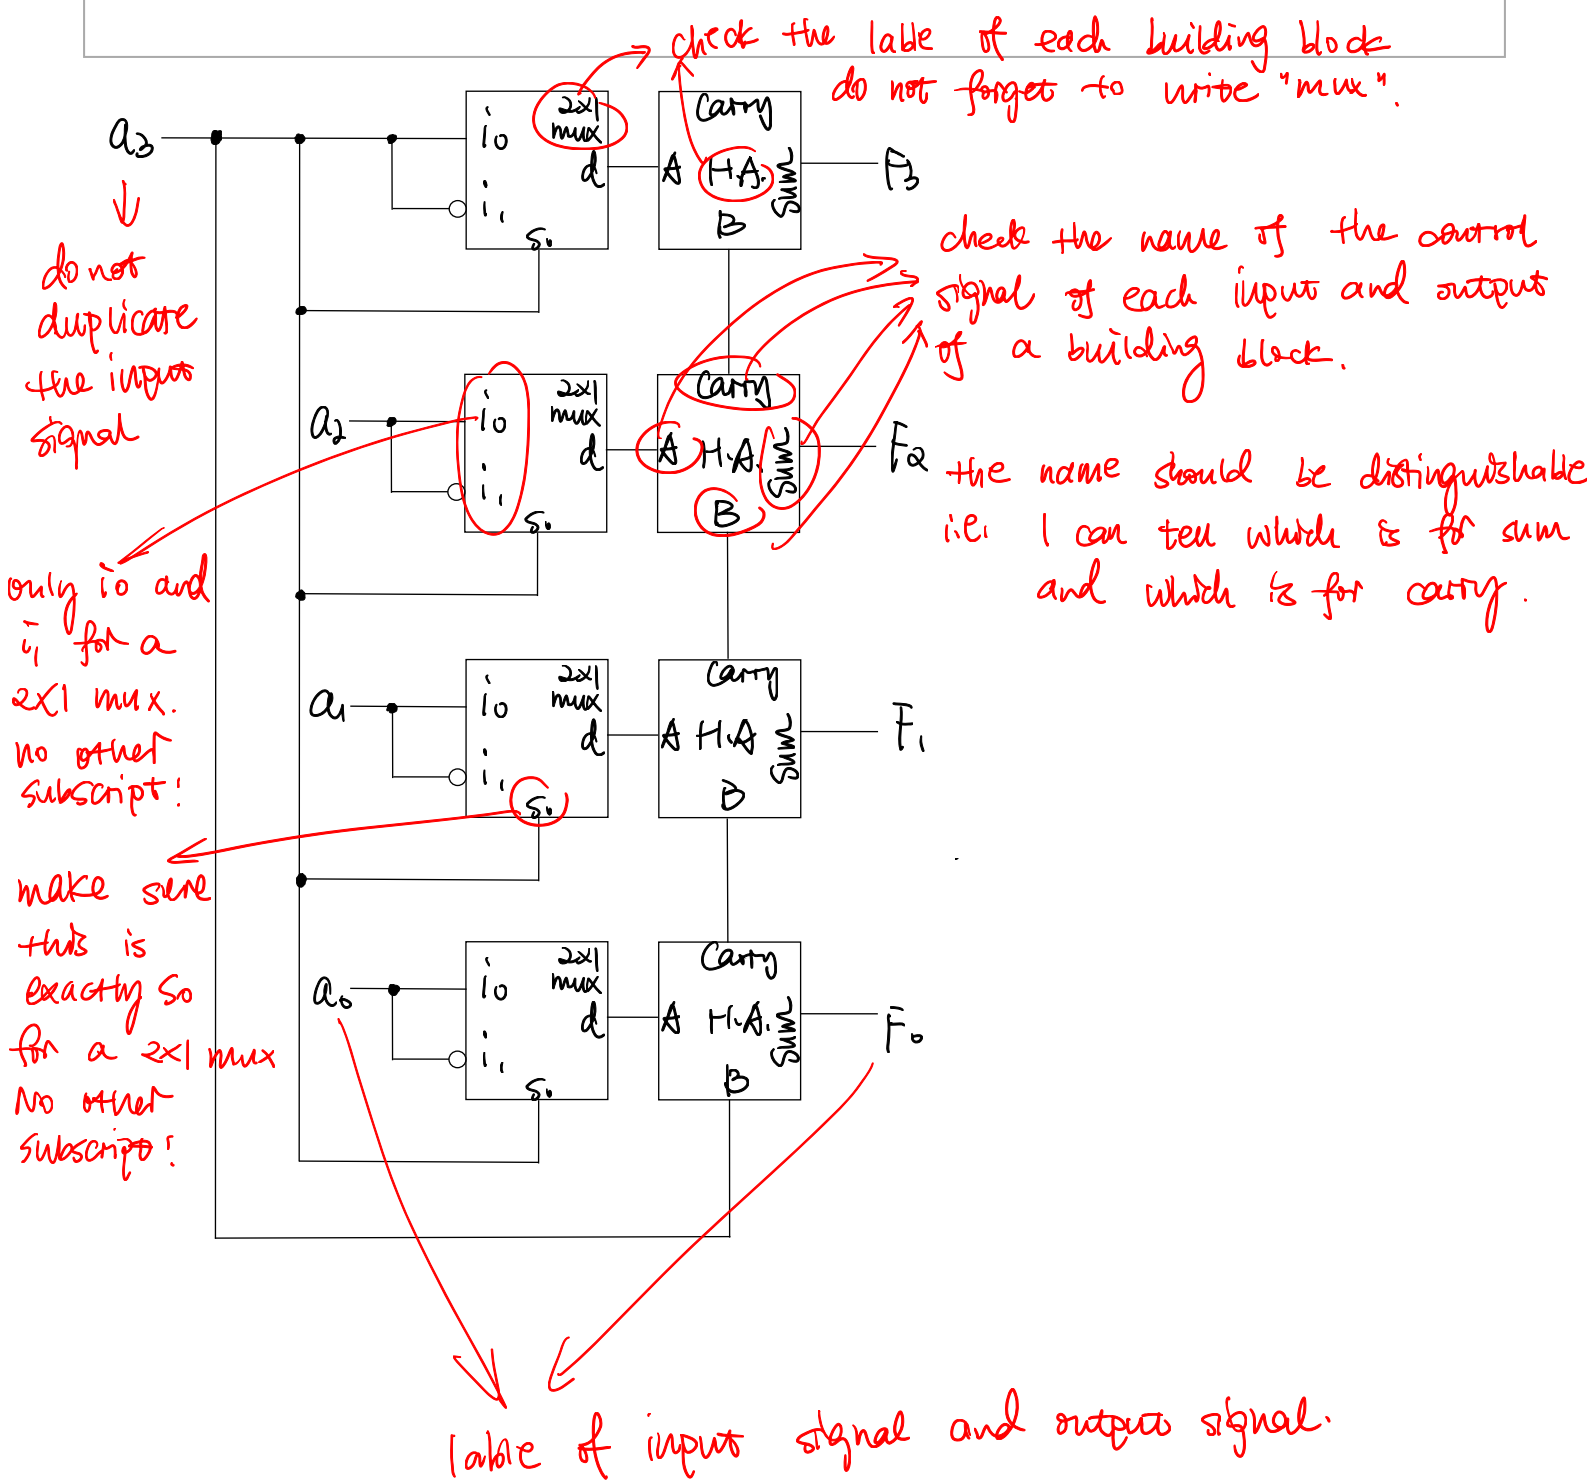 check the lable of each building block
do not forget to write "mux".
a3
i0
2x1
mux
d
i1
S0
Carry
A H.A. Sum
B
F3
do not
duplicate
the input
signal
check the name of the control
signal of each input and output
of a building block.
a2
i0
2x1
mux
d
i1
S0
Carry
A H.A. Sum
B
F2
the name should be distinguishable
i.e. I can tell which is for sum
and which is for carry.
only i0 and
i1 for a
2x1 mux.
no other
subscript!
a1
i0
2x1
mux
d
i1
S0
Carry
A H.A Sum
B
F1
make sure
this is
exactly S0
for a 2x1 mux
No other
subscript!
a0
i0
2x1
mux
d
i1
S0
Carry
A H.A. Sum
B
F0
lable of input signal and output signal.